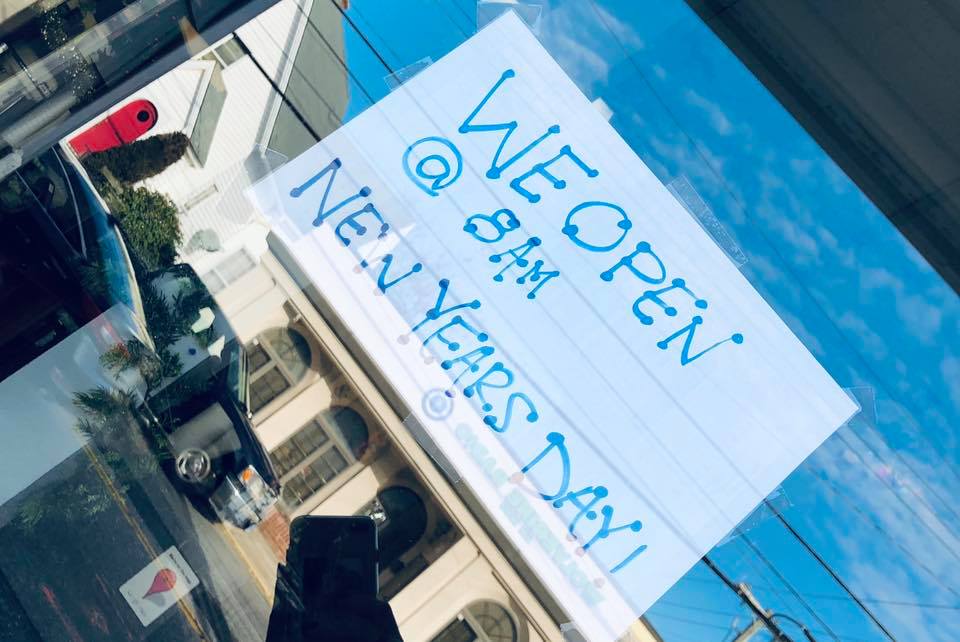 WE OPEN
@ 8AM
NEW YEARS DAY!